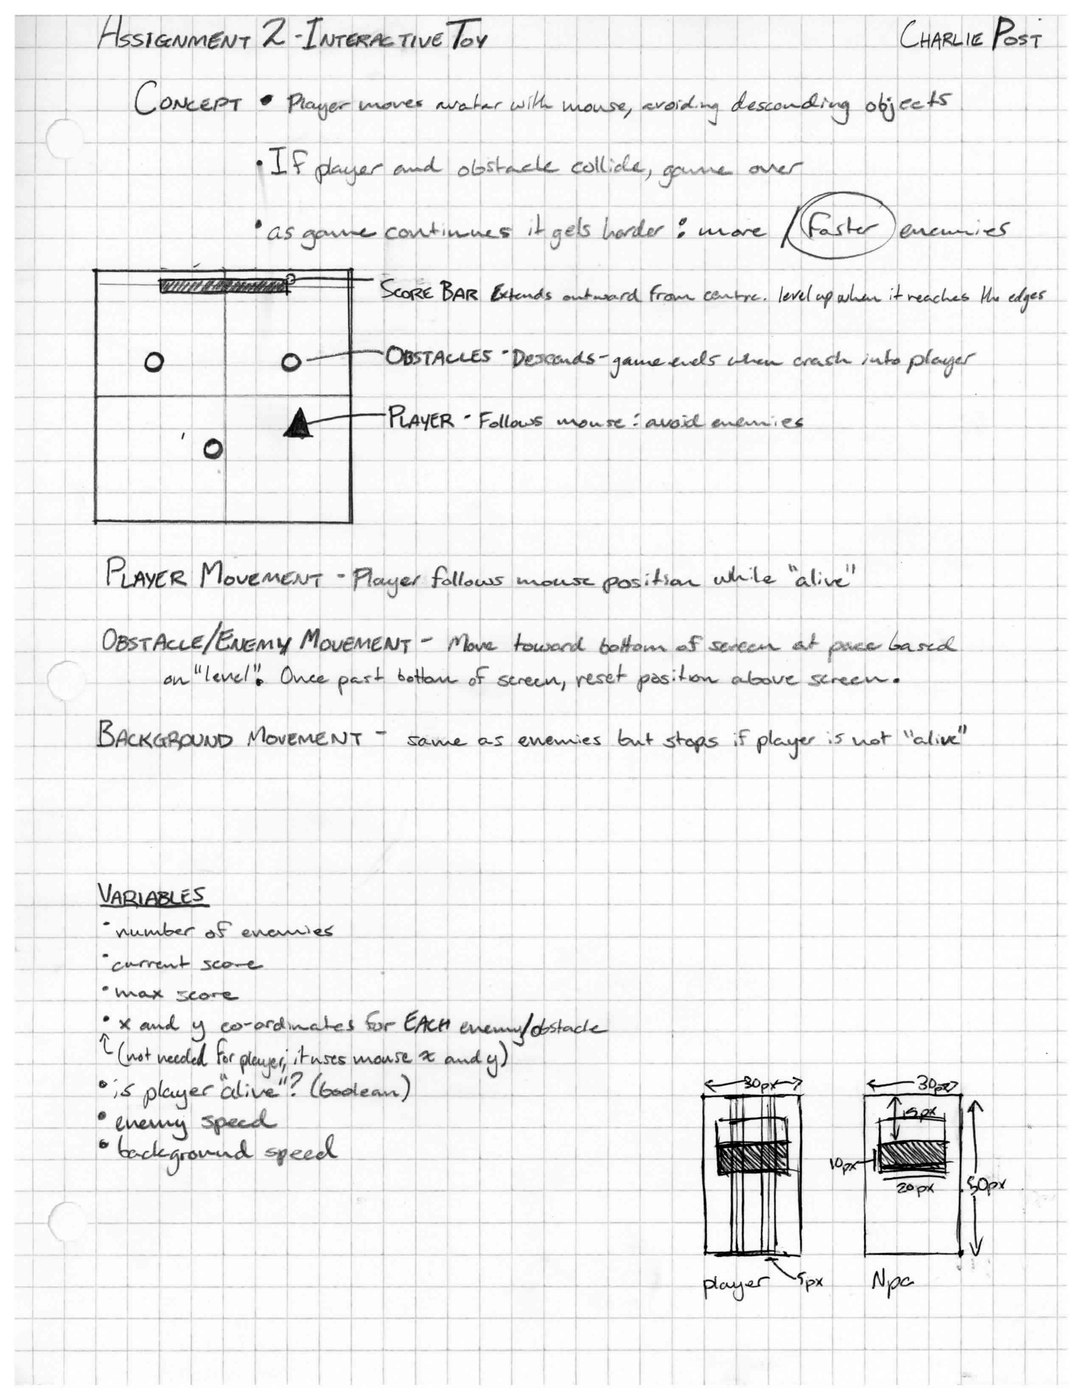 ASSIGNMENT 2 - INTERACTIVE TOY
CHARLIE POST
CONCEPT • Player moves avatar with mouse, avoiding descending objects
• If player and obstacle collide, game over
• as game continues it gets harder : more / faster enemies
SCORE BAR Extends outward from centre. level up when it reaches the edges
OBSTACLES - Descends - game ends when crash into player
PLAYER - Follows mouse : avoid enemies
PLAYER MOVEMENT - Player follows mouse position while "alive"
OBSTACLE/ENEMY MOVEMENT - Move toward bottom of screen at pace based
on "level". Once past bottom of screen, reset position above screen.
BACKGROUND MOVEMENT - same as enemies but stops if player is not "alive"
VARIABLES
• number of enemies
• current score
• max score
• x and y co-ordinates for EACH enemy/obstacle
(not needed for player; it uses mouse x and y)
• is player "alive"? (boolean)
• enemy speed
• background speed
30px
5px
player
30px
15px
10px
20px
50px
Npc